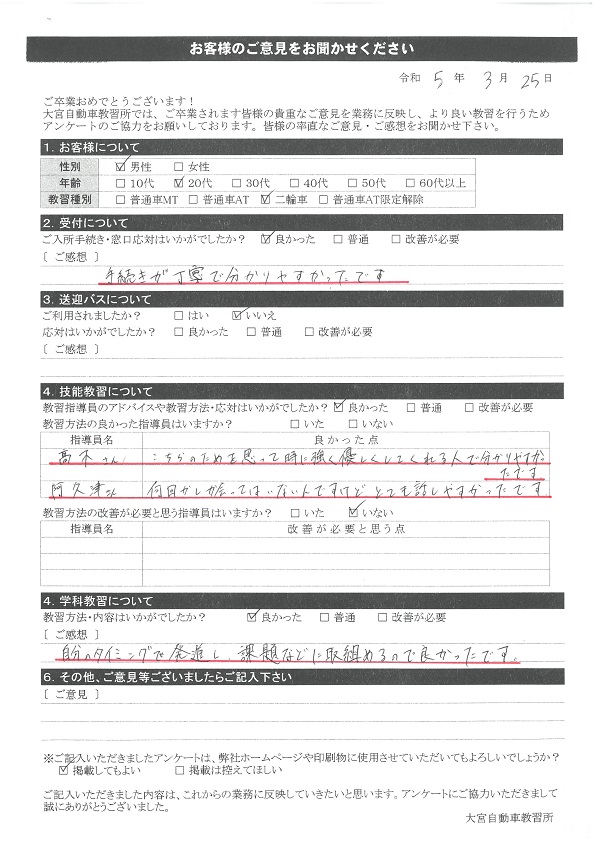 お客様のご意見をお聞かせください
令和 5 年 3 月 25 日
ご卒業おめでとうございます！
大宮自動車教習所では、ご卒業されます皆様の貴重なご意見を業務に反映し、より良い教習を行うため
アンケートのご協力をお願いしております。皆様の率直なご意見・ご感想をお聞かせ下さい。
1. お客様について
性別 ☑男性 □女性
年齢 □10代 ☑20代 □30代 □40代 □50代 □60代以上
教習種別 □普通車MT □普通車AT ☑二輪車 □普通車AT限定解除
2. 受付について
ご入所手続き・窓口応対はいかがでしたか？ ☑良かった □普通 □改善が必要
［ご感想］
手続きが丁寧で分かりやすかったです
3. 送迎バスについて
ご利用されましたか？ □はい ☑いいえ
応対はいかがでしたか？ □良かった □普通 □改善が必要
［ご感想］
4. 技能教習について
教習指導員のアドバイスや教習方法・応対はいかがでしたか？ ☑良かった □普通 □改善が必要
教習方法の良かった指導員はいますか？ □いた □いない
指導員名 良かった点
髙木さん こちらのためを思って時に強く優しくしてくれる人で分かりやすか
たです
阿久津さん 何回かしか会ってはいない人ですけど とても話しやすかったです
教習方法の改善が必要と思う指導員はいますか？ □いた ☑いない
指導員名 改善が必要と思う点
4. 学科教習について
教習方法・内容はいかがでしたか？ ☑良かった □普通 □改善が必要
［ご感想］
自分のタイミングで 課題などに取組めるので良かったです。
6. その他、ご意見等ございましたらご記入下さい
［ご意見］
※ご記入いただきましたアンケートは、弊社ホームページや印刷物に使用させていただいてもよろしいでしょうか？
☑掲載してもよい □掲載は控えてほしい
ご記入いただきました内容は、これからの業務に反映していきたいと思います。アンケートにご協力いただきまして
誠にありがとうございました。
大宮自動車教習所